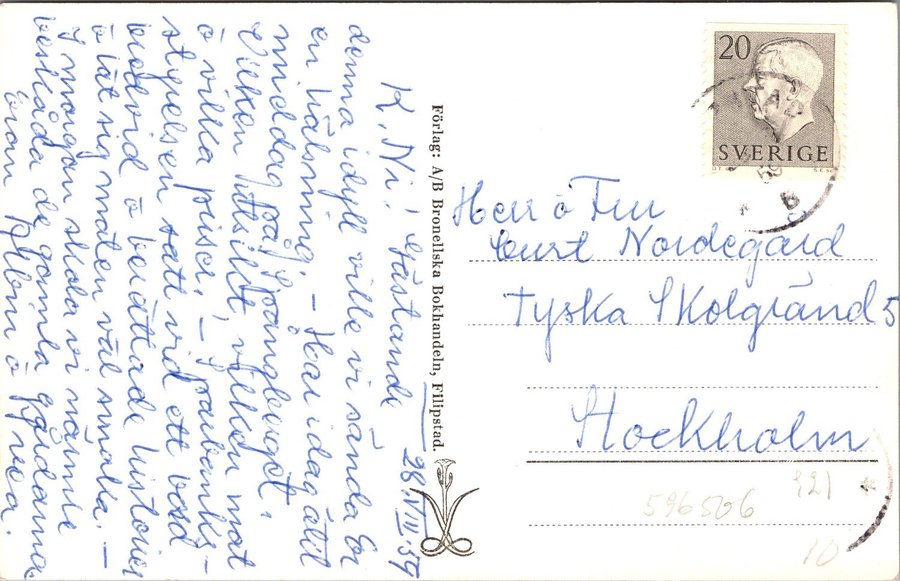 K. Ni! Gästande
denna idyll ville vi sända Er
en hälsning. – Har idag ätit
middag på Långberget!
Vilken utsikt, vilken mat
o vilka priser! –
styrelsen satt vid ett bord
bredvid o berättade historier
o lät sig maten väl smaka. –
I morgon skola vi närmre
beskåda de gamla gårdarna.
Eran
28.VIII.59
Förlag: A/B Bronellska Bokhandeln, Filipstad.
20
SVERIGE
Herr o Fru
Curt Nordegård
Tyska Skolgränd 5
Stockholm
596506
321
10